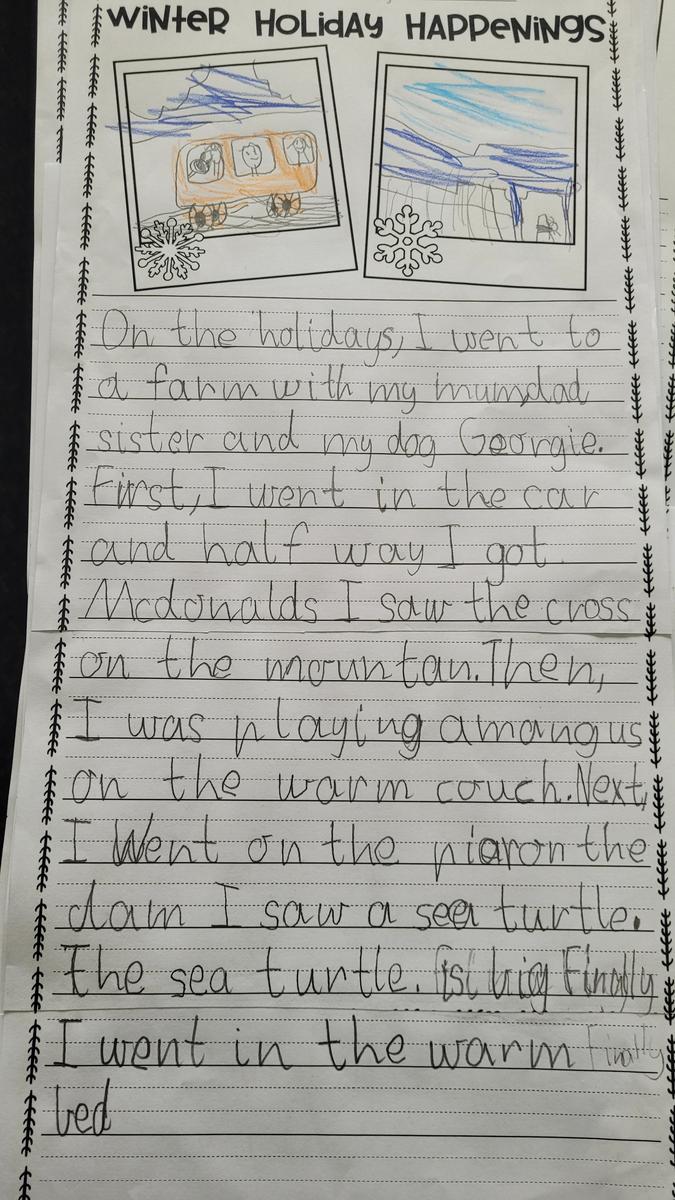 WINTER HOLIDAY HAPPENINGS
On the holidays, I went to
a farm with my mum,dad
sister and my dog Georgie.
First, I went in the car
and half way I got
Mcdonalds I saw the cross
on the mountan. Then,
I was playing among us
on the warm couch. Next,
I Went on the piar on the
dam I saw a sea turtle.
The sea turtle. is big Finally
I went in the warm Finally
bed